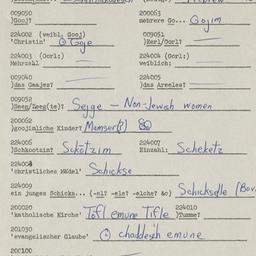 009050 200063
)Gooj? mehrere Go... Gojim
224002 (weibl. Gooj) 009051
'Christin' Goje )Kerl/Gorl?
224003 (Gorl:) 224004 (Gorl:)
Mehrzahl weiblich:
009040 224005
)das Gnajes? )das Areles?
009052
)Seeg/Zeeg(te)? Segge - Non-Jewish women
200062
)goojinliche Kinder? Mamser(?)
224006 224007
)Schkootzim? Schkötzim Einzahl: Scheketz
224008
'christliches Mädel' Schickse
224009
ein junges Schicks... (-el? -ele? -elche? &c) Schickselle (Bav.
200020 224010
'katholische Kirche' Tofl emune Tifle )Tumme?
201030
'evangelischer Glaube' chaddesh emune
200100